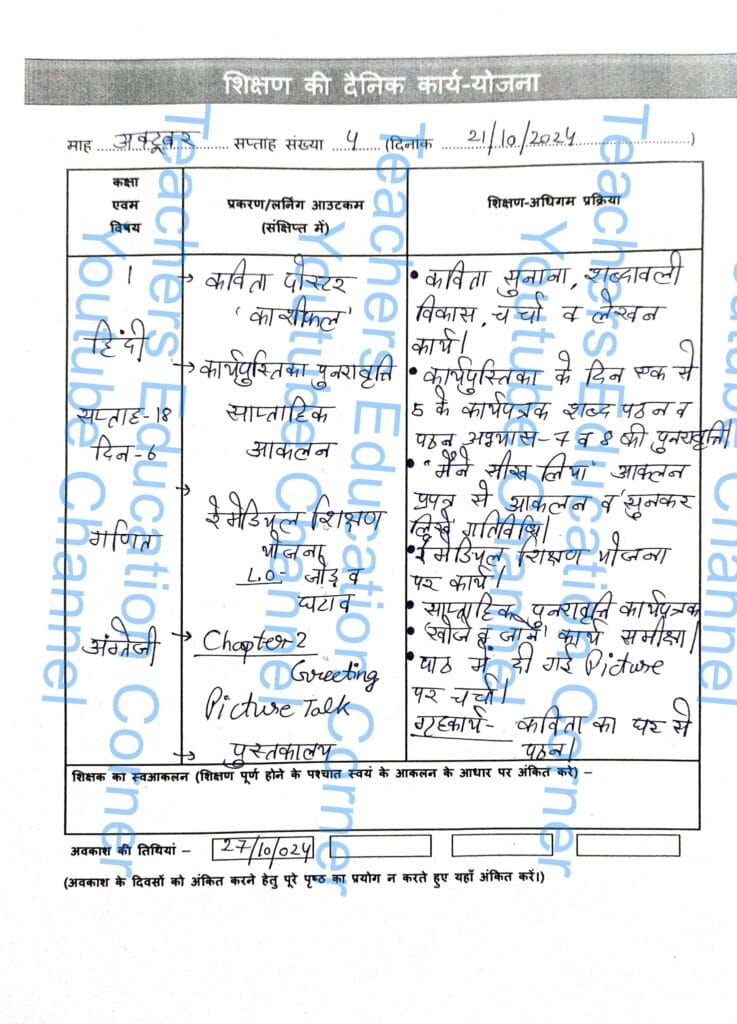 शिक्षण की दैनिक कार्य-योजना
माह अक्टूबर सप्ताह संख्या 4 (दिनांक 21/10/2024)
कक्षा
एवम
विषय
प्रकरण/लर्निंग आउटकम
(संक्षिप्त में)
शिक्षण-अधिगम प्रक्रिया
1
हिंदी
सप्ताह-18
दिन-6
गणित
अंग्रेजी
→ कविता पोस्टर
'काशीफल'
→ कार्यपुस्तिका पुनरावृत्ति
साप्ताहिक
आकलन
→
रेमेडियल शिक्षण
योजना
L.O- जोड़ व
घटाव
→ Chapter-2
Greeting
Picture Talk
→ पुस्तकालय
• कविता सुनाना, शब्दावली
विकास, चर्चा व लेखन
कार्य।
• कार्यपुस्तिका के दिन एक से
5 के कार्यपत्रक शब्द पठन व
पठन अभ्यास-7 व 8 की पुनरावृत्ति।
• "मैंने सीख लिया" आकलन
प्रपत्र से आकलन व 'सुनकर
लिखें' गतिविधि।
• रेमेडियल शिक्षण योजना
पर कार्य।
• साप्ताहिक पुनरावृत्ति कार्यपत्रक
• 'खोजें व जानें' कार्य समीक्षा।
• पाठ में दी गई Picture
पर चर्चा।
गृहकार्य- कविता का घर से
पठन।
शिक्षक का स्वआकलन (शिक्षण पूर्ण होने के पश्चात स्वयं के आकलन के आधार पर अंकित करे) –
अवकाश की तिथियां – 27/10/024
(अवकाश के दिवसों को अंकित करने हेतु पूरे पृष्ठ का प्रयोग न करते हुए यहाँ अंकित करें।)
Teachers Education Corner
Youtube Channel
Teachers Education Corner
Youtube Channel
Teachers Education Corner
Youtube Channel